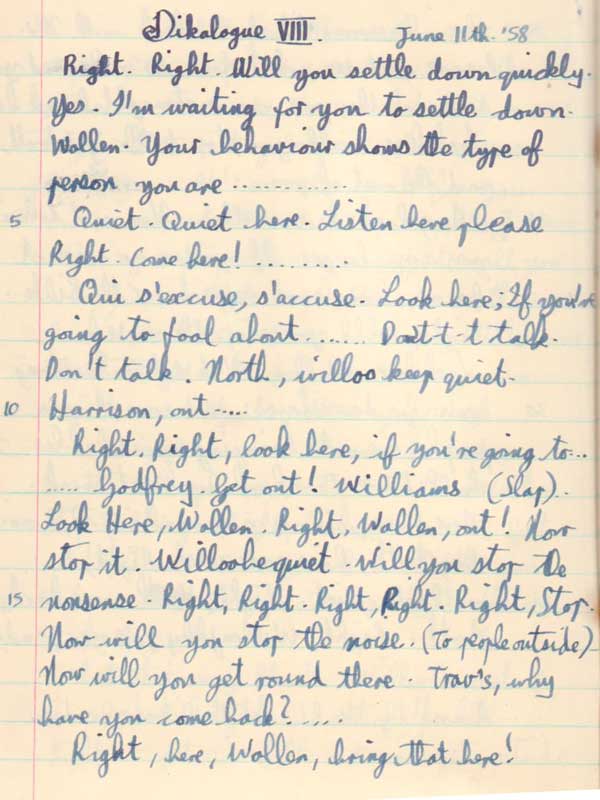 Dikalogue VIII. June 11th. '58
Right. Right. Will you settle down quickly.
Yes. I'm waiting for you to settle down.
Wallen. Your behaviour shows the type of
person you are ............
5 Quiet. Quiet here. Listen here please
Right. Come here! ..........
Qui s'excuse, s'accuse. Look here, If you're
going to fool about....... Don't-t-t talk.
Don't talk. North, willoo keep quiet.
10 Harrison, out.....
Right. Right, look here, if you're going to...
..... Godfrey. Get out! Williams (Slap)..
Look Here, Wallen. Right, Wallen, out! Now
stop it. Willoobequiet. Will you stop the
15 nonsense. Right, Right. Right, Right. Right, Stop.
Now will you stop the noise. (To people outside)
Now will you get round there. Trav's, why
have you come back?.....
Right, here, Wallen, bring that here!